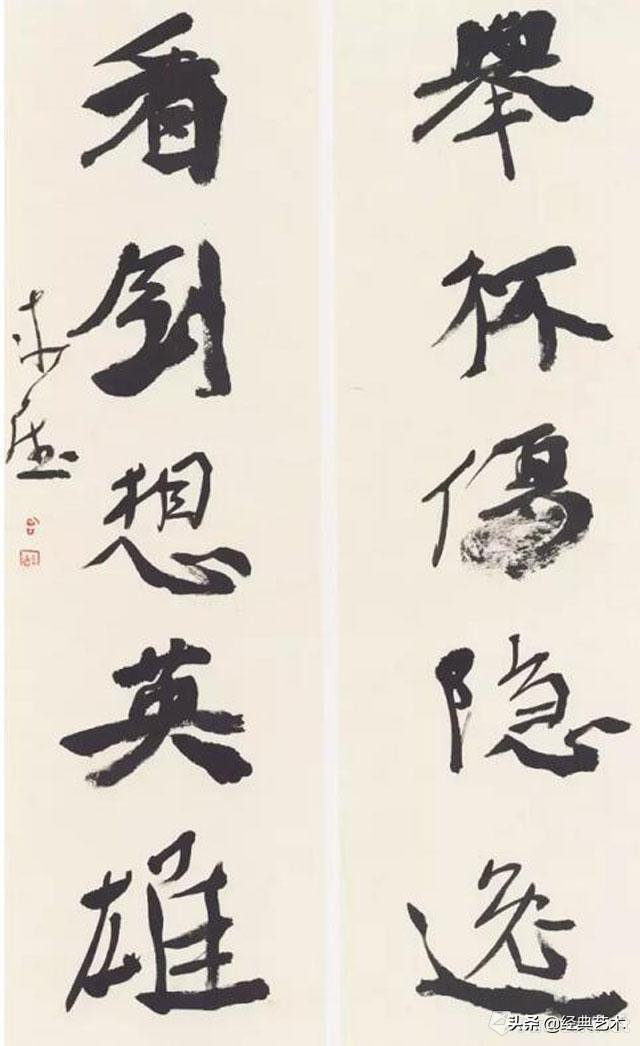 舉杯傷隐逸
看剑想英雄
头条@经典艺术